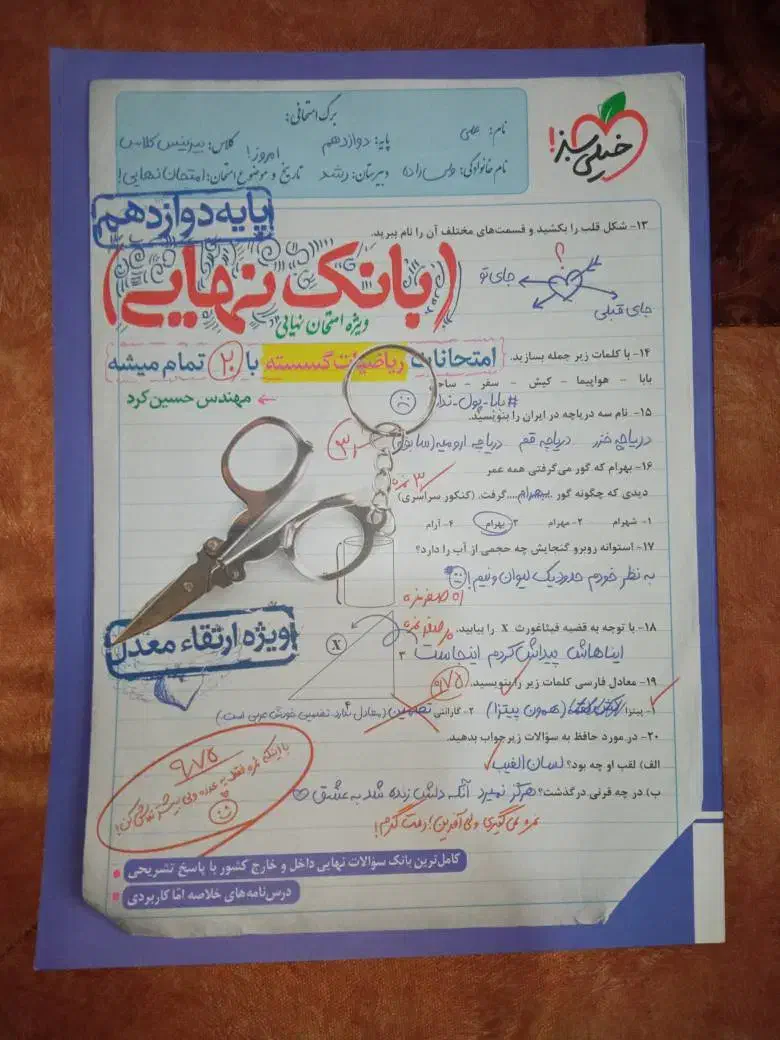 خیلی سبز!
برگ امتحانی:
نام: علی پایه: دوازدهم کلاس: بیزینس کلاس
نام خانوادگی: دبیرستان: رشد تاریخ و موضوع امتحان: امروز! امتحان نهایی!
پایه دوازدهم
(بانک نهایی)
ویژه امتحان نهایی
امتحانات ریاضیات گسسته با ۲۰ تمام میشه
مهندس حسین کرد
۱۳- شکل قلب را بکشید و قسمت‌های مختلف آن را نام ببرید.
؟
جای تو
جای قبلی
۱۴- با کلمات زیر جمله بسازید.
بابا - هواپیما - کیش - سفر -
#بابا-پول-
۱۵- نام سه دریاچه در ایران را بنویسید.
دریاچه خزر دریاچه قم دریاچه ارومیه (سابقاً)
۱۶- بهرام که گور می‌گرفتی همه عمر
دیدی که چگونه گور بهرام.... گرفت. (کنکور سراسری)
۱- شهرام ۲- مهرام ۳ بهرام ۴- آرام
۱۷- استوانه روبرو گنجایش چه حجمی از آب را دارد؟
به نظر خودم حدود یک لیوان و نیم!
۱۸- با توجه به قضیه فیثاغورث X را بیابید.
ایناهاش پیداش کردم اینجاست
X
۳
۴
۱۹- معادل فارسی کلمات زیر را بنویسید.
۱- پیتزا (همون پیتزا) ۲- گارانتی تضمین (معادل نداره تضمین خودش عربی است)
۲۰- در مورد حافظ به سؤالات زیر جواب بدهید.
الف) لقب او چه بود؟ لسان الغیب
ب) در چه قرنی درگذشت؟ هرگز نمیرد آنکه دلش زنده شد به عشق
نمره نمی‌گیری ولی آفرین! دمت گرم!
ویژه ارتقاء معدل
۹/۷۵
کامل‌ترین بانک سؤالات نهایی داخل و خارج کشور با پاسخ تشریحی
درس‌نامه‌های خلاصه اما کاربردی